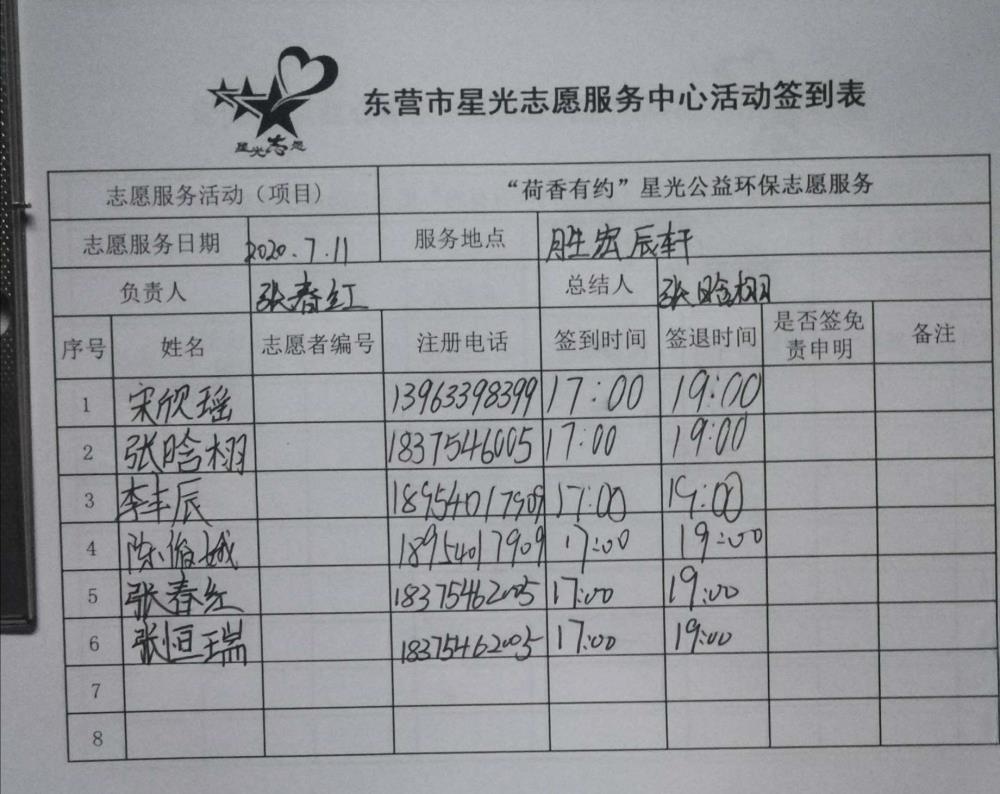 星光志愿
东营市星光志愿服务中心活动签到表
志愿服务活动（项目） “荷香有约”星光公益环保志愿服务
志愿服务日期 2020.7.11 服务地点 胜宏辰轩
负责人 张春红 总结人 张晗栩
序号 姓名 志愿者编号 注册电话 签到时间 签退时间 是否签免责申明 备注
1 宋欣瑶 13963398399 17:00 19:00
2 张晗栩 1837546005 17:00 19:00
3 李丰辰 18954017909 17:00 19:00
4 陈俊娥 18954017909 17:00 19:00
5 张春红 18375462005 17:00 19:00
6 张恒瑞 18375462005 17:00 19:00
7
8